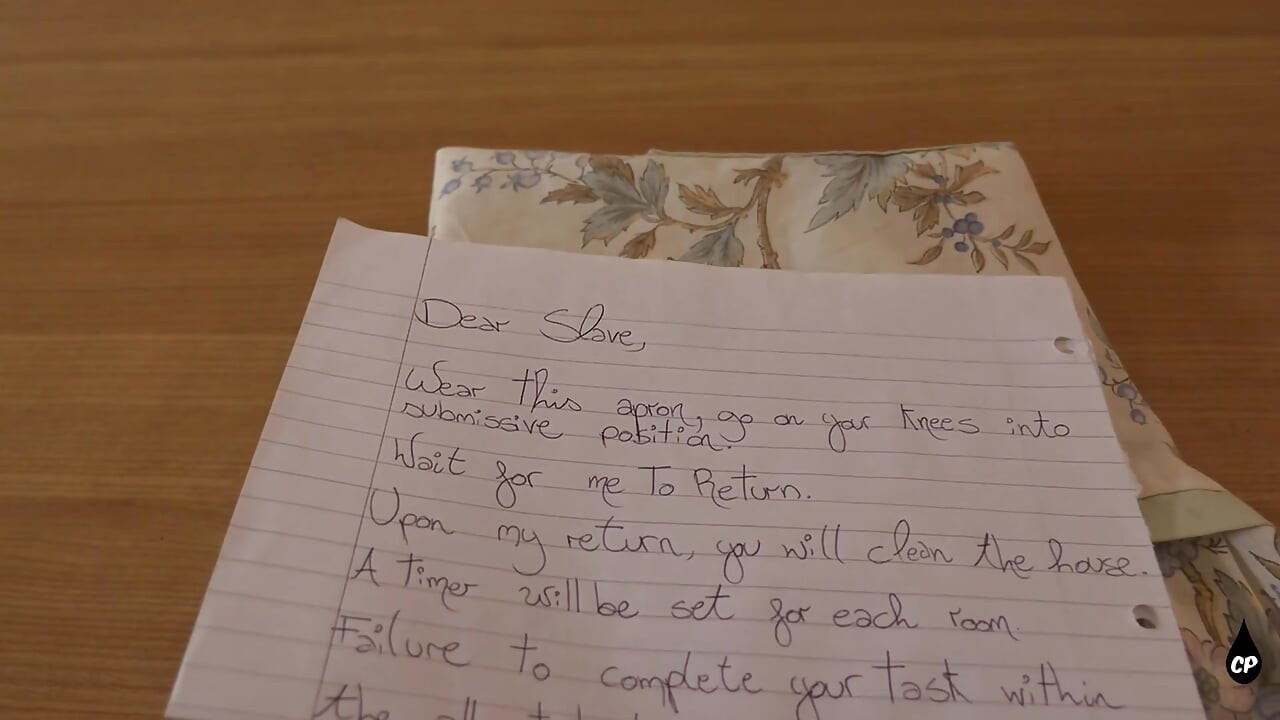 Dear Slave,
Wear this apron, go on your knees into
submissive position.
Wait for me To Return.
Upon my return, you will clean the house.
A timer will be set for each room.
Failure to complete your task within
the
CP